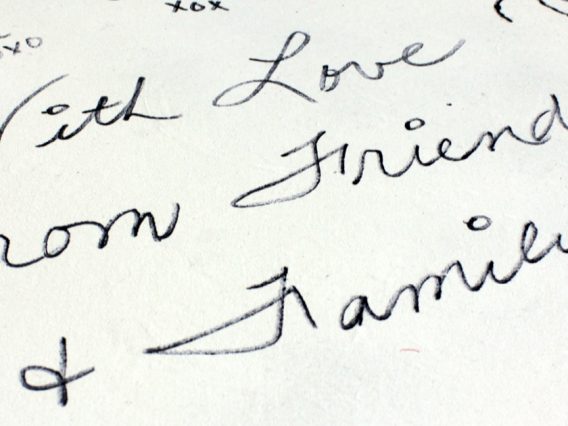 xox
xo
With Love
rom Friend
& Famil